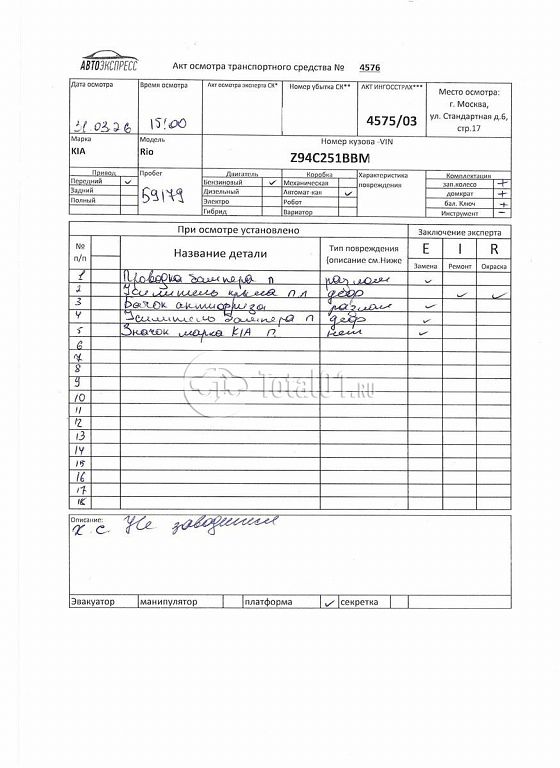 АВТОЭКСПРЕСС
Акт осмотра транспортного средства № 4576
Дата осмотра Время осмотра Акт осмотра эксперта СК* Номер убытка СК** АКТ ИНГОССТРАХ*** Место осмотра:
31.03.26 15:00 4575/03 г. Москва,
ул. Стандартная д.6,
стр.17
Марка Модель Номер кузова -VIN
KIA Rio Z94C251BBM
Привод Пробег Двигатель Коробка Характеристика повреждения Комплектация
Передний ✓ 59179 Бензиновый ✓ Механическая зап.колесо +
Задний Дизельный Автомат-кая ✓ домкрат +
Полный Электро Робот бал. Ключ +
Гибрид Вариатор Инструмент –
При осмотре установлено Заключение эксперта
№ п/п Название детали Тип повреждения (описание см.Ниже E I R
Замена Ремонт Окраска
1 Проводка бампера п разлом ✓
2 Усилитель крыла п л деф ✓ ✓
3 Бачок антифриза разлом ✓
4 Усилитель бампера п деф ✓
5 Значок марка KIA п. нет ✓
6
7
8
9
10
11
12
13
14
15
16
17
18
Total01.ru
Описание:
Х.С. Не заводится
Эвакуатор манипулятор платформа ✓ секретка